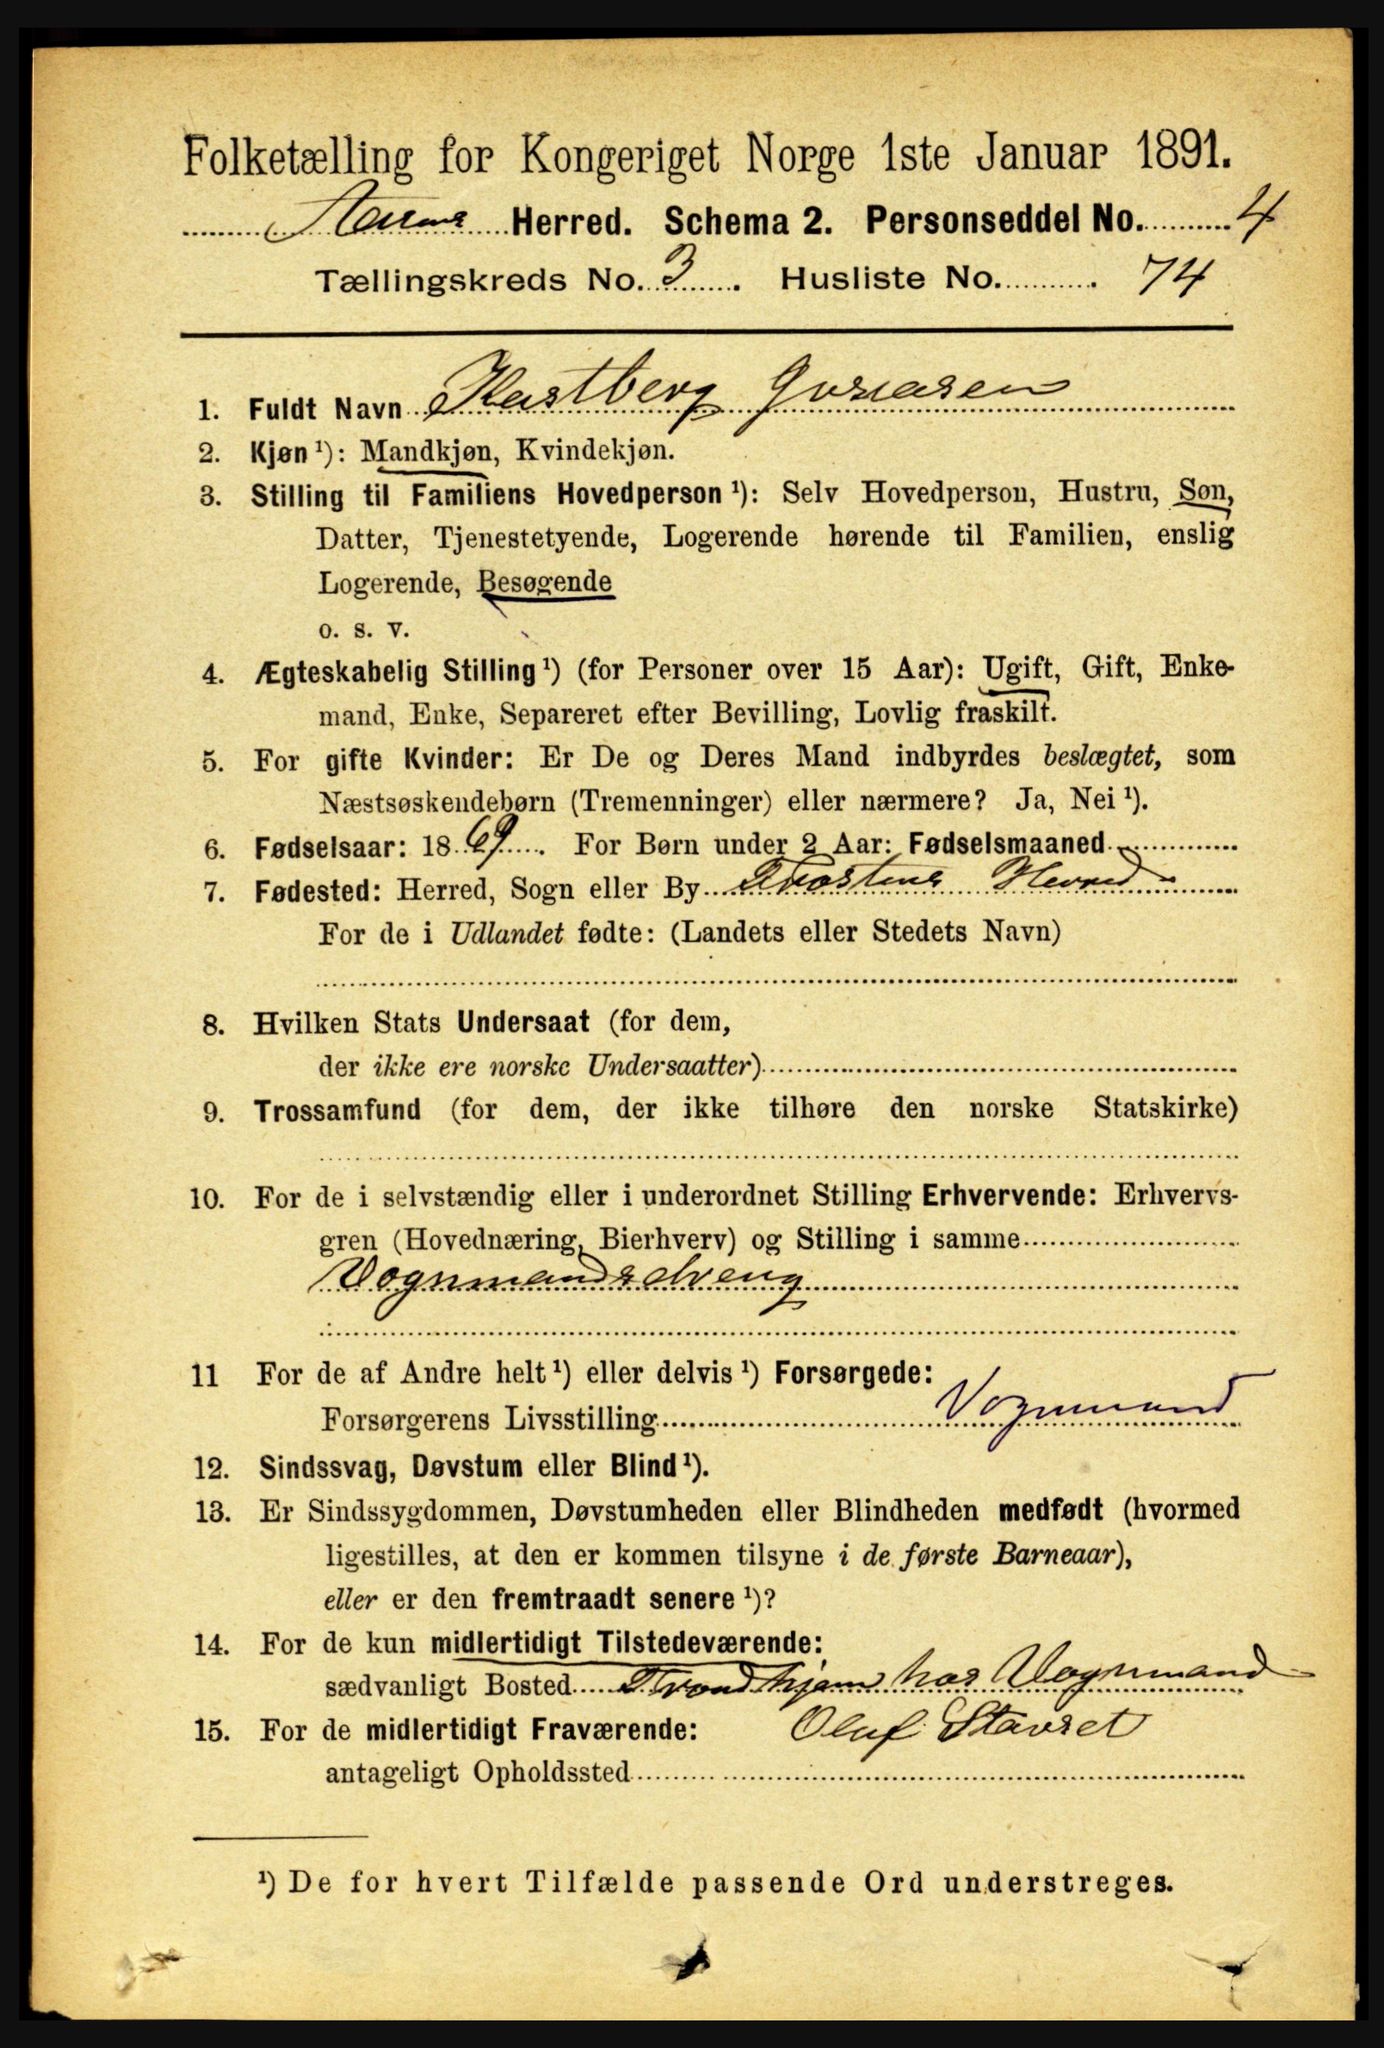 Folketælling for Kongeriget Norge 1ste Januar 1891.
Herred. Schema 2. Personseddel No. 4
Tællingskreds No. 3. Husliste No. 74
1. Fuldt Navn Hastberg
2. Kjøn ¹): Mandkjøn, Kvindekjøn.
3. Stilling til Familiens Hovedperson ¹): Selv Hovedperson, Hustru, Søn,
Datter, Tjenestetyende, Logerende hørende til Familien, enslig
Logerende, Besøgende
o. s. v.
4. Ægteskabelig Stilling ¹) (for Personer over 15 Aar): Ugift, Gift, Enke-
mand, Enke, Separeret efter Bevilling, Lovlig fraskilt.
5. For gifte Kvinder: Er De og Deres Mand indbyrdes beslægtet, som
Næstsøskendebørn (Tremenninger) eller nærmere? Ja, Nei ¹).
6. Fødselsaar: 1869. For Børn under 2 Aar: Fødselsmaaned
7. Fødested: Herred, Sogn eller By Herred
For de i Udlandet fødte: (Landets eller Stedets Navn)
8. Hvilken Stats Undersaat (for dem,
der ikke ere norske Undersaatter)
9. Trossamfund (for dem, der ikke tilhøre den norske Statskirke)
10. For de i selvstændig eller i underordnet Stilling Erhvervende: Erhvervs-
gren (Hovednæring, Bierhverv) og Stilling i samme
Vognmandsdreng
11 For de af Andre helt ¹) eller delvis ¹) Forsørgede:
Forsørgerens Livsstilling Vognmand
12. Sindssvag, Døvstum eller Blind ¹).
13. Er Sindssygdommen, Døvstumheden eller Blindheden medfødt (hvormed
ligestilles, at den er kommen tilsyne i de første Barneaar),
eller er den fremtraadt senere ¹)?
14. For de kun midlertidigt Tilstedeværende:
sædvanligt Bosted Trondhjem hos Vognmand
15. For de midlertidigt Fraværende: Oluf Stavset
antageligt Opholdssted
¹) De for hvert Tilfælde passende Ord understreges.